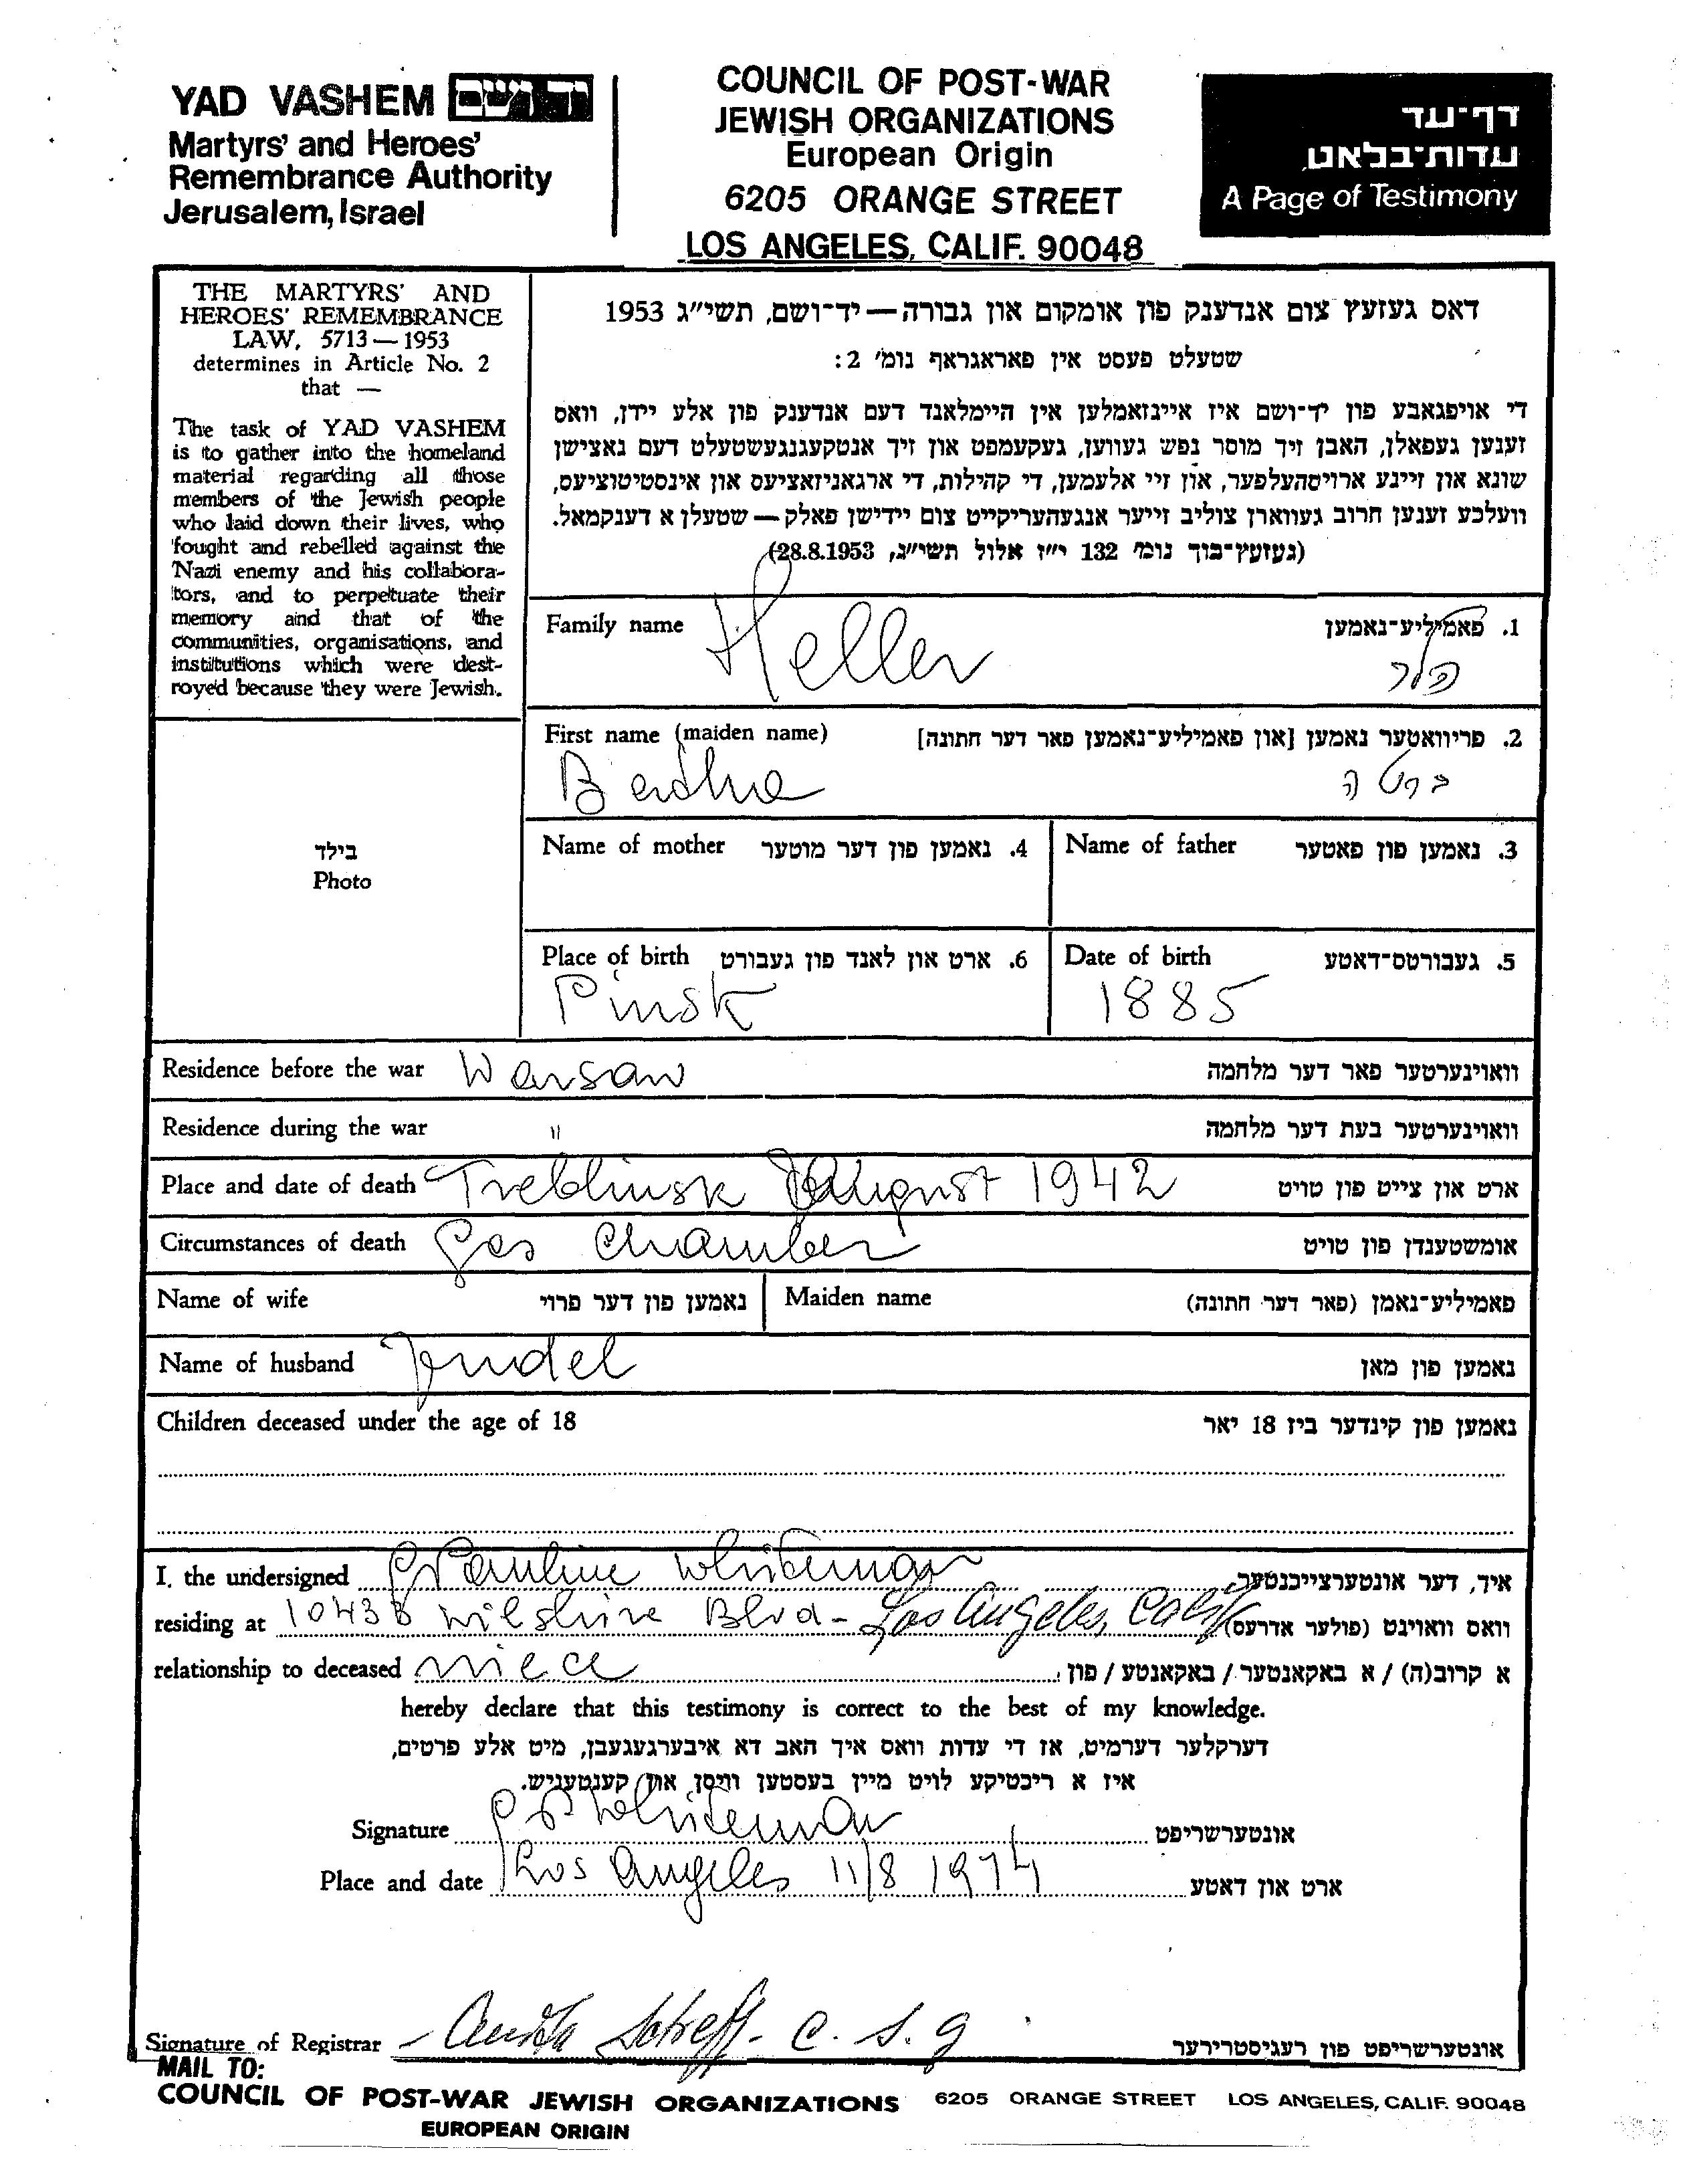 YAD VASHEM יד ושם
Martyrs' and Heroes'
Remembrance Authority
Jerusalem, Israel
COUNCIL OF POST-WAR
JEWISH ORGANIZATIONS
European Origin
6205 ORANGE STREET
LOS ANGELES, CALIF. 90048
דף־עד
עדות־בלאט
A Page of Testimony
THE MARTYRS' AND
HEROES' REMEMBRANCE
LAW, 5713—1953
determines in Article No. 2
that —
The task of YAD VASHEM
is to gather into the homeland
material regarding all those
members of the Jewish people
who laid down their lives, who
fought and rebelled against the
Nazi enemy and his collabora-
tors, and to perpetuate their
memory and that of the
communities, organisations, and
institutions which were dest-
royed because they were Jewish.
דאס געזעץ צום אנדענק פון אומקום און גבורה — יד־ושם, תשי״ג 1953
שטעלט פעסט אין פאראגראף נומ׳ 2:
די אויפגאבע פון יד־ושם איז איינזאמלען אין היימלאנד דעם אנדענק פון אלע יידן, וואס
זענען געפאלן, האבן זיך מוסר נפש געווען, געקעמפט און זיך אנטקעגנגעשטעלט דעם נאצישן
שונא און זיינע ארויסהעלפער, און זיי אלעמען, די קהילות, די ארגאניזאציעס און אינסטיטוציעס,
וועלכע זענען חרוב געווארן צוליב זייער אנגעהעריקייט צום יידישן פאלק — שטעלן א דענקמאל.
(געזעץ־בוך נומ׳ 132 י״ז אלול תשי״ג, 28.8.1953)
Family name Heller 1. פאמיליע־נאמען
הלר
First name (maiden name) 2. פריוואטער נאמען [און פאמיליע־נאמען פאר דער חתונה]
Berthe ברטה
בילד
Photo
Name of mother 4. נאמען פון דער מוטער Name of father 3. נאמען פון פאטער
Place of birth 6. ארט און לאנד פון געבורט Date of birth 5. געבורטס־דאטע
Pinsk 1885
Residence before the war Warsaw וואוינערטער פאר דער מלחמה
Residence during the war " וואוינערטער בעת דער מלחמה
Place and date of death Treblinsk August 1942 ארט און צייט פון טויט
Circumstances of death Gas Chamber אומשטענדן פון טויט
Name of wife נאמען פון דער פרוי Maiden name פאמיליע־נאמן (פאר דער חתונה)
Name of husband Jendel נאמען פון מאן
Children deceased under the age of 18 נאמען פון קינדער ביז 18 יאר
I, the undersigned Pauline Whiteman איך, דער אונטערצייכנטער
residing at 10438 Wilshire Blvd - Los Angeles, Calif. וואס וואוינט (פולער אדרעס)
relationship to deceased niece א קרוב(ה) / א באקאנטער / באקאנטע / פון
hereby declare that this testimony is correct to the best of my knowledge.
דערקלער דערמיט, אז די עדות וואס איך האב דא איבערגעגעבן, מיט אלע פרטים,
איז א ריכטיקע לויט מיין בעסטען וויסן און קענטעניש.
Signature P Whiteman אונטערשריפט
Place and date Los Angeles 11/8 1974 ארט און דאטע
Signature of Registrar C. S. G אונטערשריפט פון רעגיסטרירער
MAIL TO:
COUNCIL OF POST-WAR JEWISH ORGANIZATIONS 6205 ORANGE STREET LOS ANGELES, CALIF. 90048
EUROPEAN ORIGIN